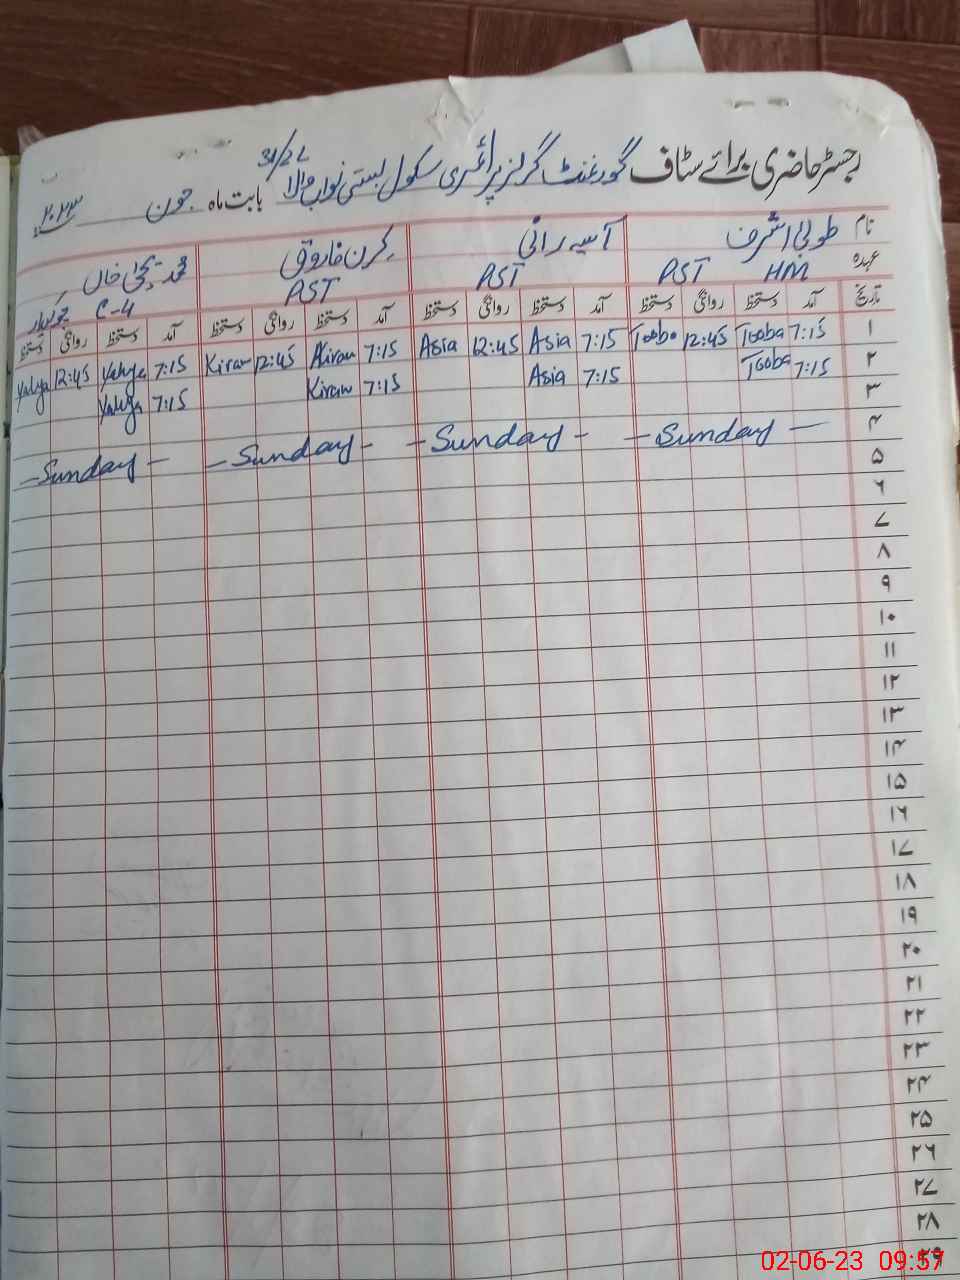 رجسٹر حاضری برائے سٹاف گورنمنٹ گرلز پرائمری سکول بستی نواب والا 31/2L بابت ماہ جون ۲۰۲۳
نام طوبیٰ اشرف آسیہ رانی کرن فاروق محمد یحییٰ خاں
عہدہ HM PST PST PST C-4 چوکیدار
تاریخ آمد دستخط روانگی دستخط آمد دستخط روانگی دستخط آمد دستخط روانگی دستخط آمد دستخط روانگی دستخط
۱ 7:15 Tooba 12:45 Tooba 7:15 Asia 12:45 Asia 7:15 Kiran 12:45 Kiran 7:15 Yahya 12:45 Yahya
۲ 7:15 Tooba 7:15 Asia 7:15 Kiran 7:15 Yahya
۳
۴ - Sunday - - Sunday - - Sunday - - Sunday -
۵
۶
۷
۸
۹
۱۰
۱۱
۱۲
۱۳
۱۴
۱۵
۱۶
۱۷
۱۸
۱۹
۲۰
۲۱
۲۲
۲۳
۲۴
۲۵
۲۶
۲۷
۲۸
۲۹
02-06-23 09:57